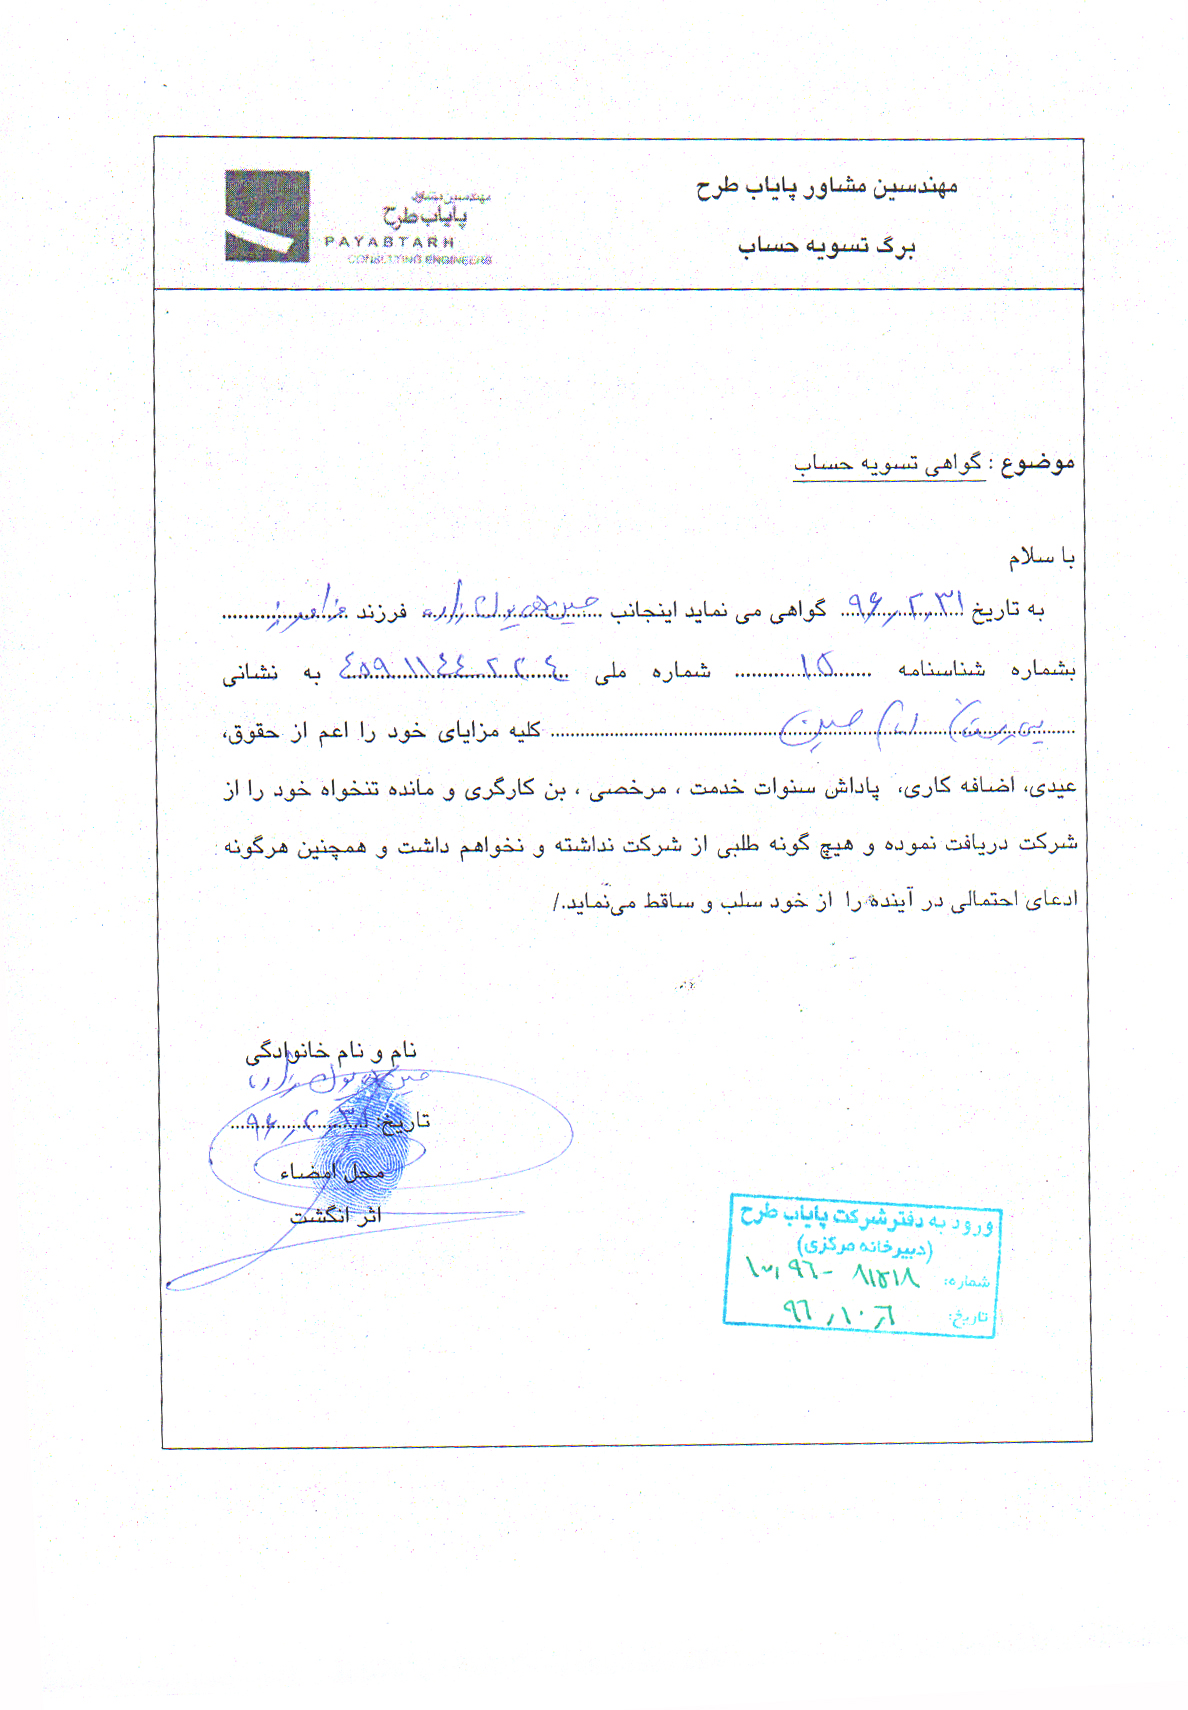 مهندسین مشاور پایاب طرح
برگ تسویه حساب
مهندسین مشاور
پایاب طرح
PAYABTARH
CONSULTING ENGINEERS
موضوع : گواهی تسویه حساب
با سلام
به تاریخ ۹۶٫۲٫۳۱ گواهی می نماید اینجانب حسین زاده فرزند فرامرز
بشماره شناسنامه ۱۵ شماره ملی ۴۵۹۰۱۱۴۴۰۲۰۲۰۴ به نشانی
امام حسین کلیه مزایای خود را اعم از حقوق،
عیدی، اضافه کاری، پاداش سنوات خدمت ، مرخصی ، بن کارگری و مانده تنخواه خود را از
شرکت دریافت نموده و هیچ گونه طلبی از شرکت نداشته و نخواهم داشت و همچنین هرگونه
ادعای احتمالی در آینده را از خود سلب و ساقط می‌نماید./
نام و نام خانوادگی
حسین زاده
تاریخ: ۹۶٫۲٫۳۱
محل امضاء
اثر انگشت
ورود به دفتر شرکت پایاب طرح
(دبیرخانه مرکزی)
شماره:
تاریخ: ۹۶٫۱۰٫۶